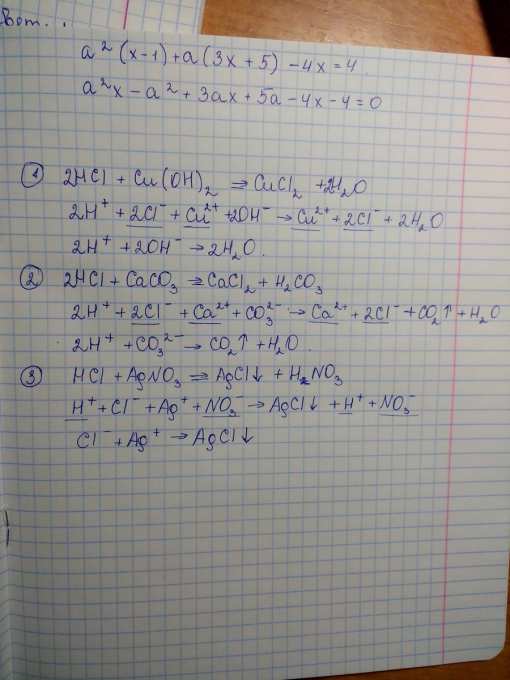 Вот...
a² (x-1) + a (3x + 5) - 4x = 4
a²x - a² + 3ax + 5a - 4x - 4 = 0
① 2HCl + Cu(OH)₂ ⇒ CuCl₂ + 2H₂O
2H⁺ + 2Cl⁻ + Cu²⁺ + 2OH⁻ → Cu²⁺ + 2Cl⁻ + 2H₂O
2H⁺ + 2OH⁻ → 2H₂O.
② 2HCl + CaCO₃ ⇒ CaCl₂ + H₂CO₃
2H⁺ + 2Cl⁻ + Ca²⁺ + CO₃²⁻ → Ca²⁺ + 2Cl⁻ + CO₂↑ + H₂O
2H⁺ + CO₃²⁻ → CO₂↑ + H₂O.
③ HCl + AgNO₃ ⇒ AgCl↓ + HNO₃
H⁺ + Cl⁻ + Ag⁺ + NO₃⁻ → AgCl↓ + H⁺ + NO₃⁻
Cl⁻ + Ag⁺ → AgCl↓